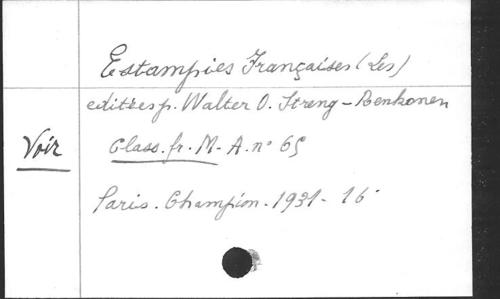 Estampies Françaises (Les)
editées p. Walter O. Streng-Renkonen
Voir Class. fr. M. A. n° 65
Paris. Champion. 1931 - 16°